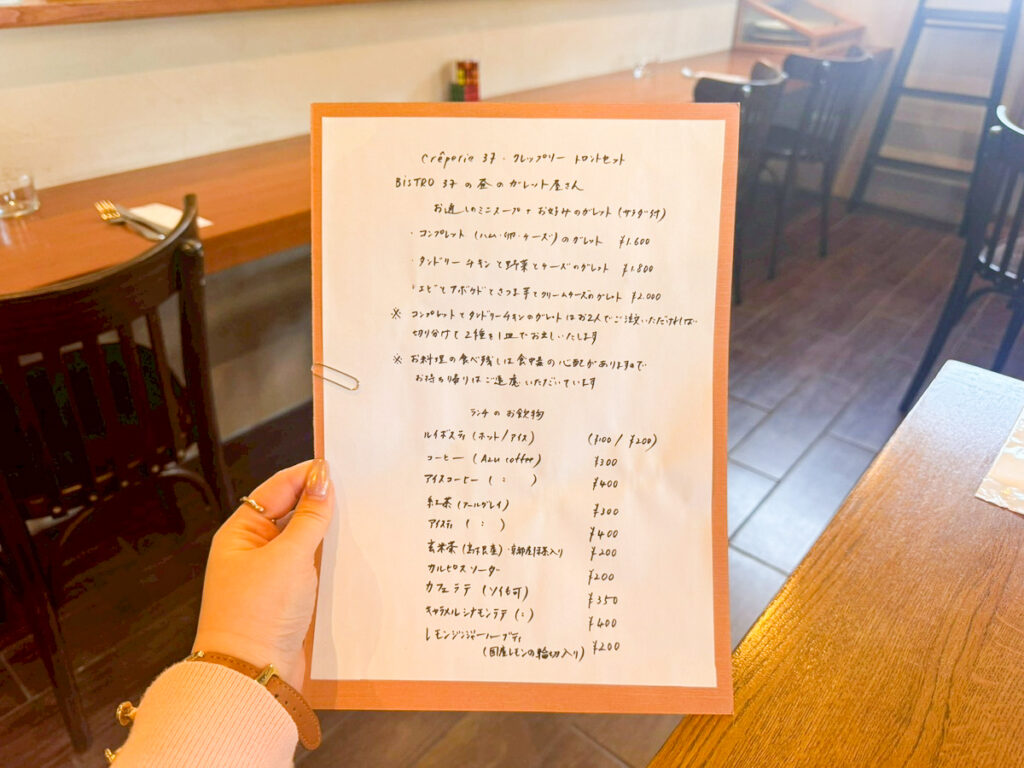 Crêperie 37・クレップリー トロントセット
BISTRO 37 の昼のガレット屋さん
お通しのミニスープ + お好みのガレット (サラダ付)
・コンプレット (ハム・卵・チーズ) のガレット ¥1.600
・タンドリーチキンと野菜とチーズのガレット ¥1.800
・エビとアボカドとさつま芋とクリームチーズのガレット ¥2.000
※ コンプレットとタンドリーチキンのガレットはお2人でご注文いただければ
切り分けて2種を1皿でお出しいたします
※ お料理の食べ残しは食中毒の心配がありますので
お持ち帰りはご遠慮いただいています
ランチのお飲物
ルイボスティ (ホット/アイス) (¥100 / ¥200)
コーヒー (Azu coffee) ¥300
アイスコーヒー ( : ) ¥400
紅茶 (アールグレイ) ¥300
アイスティ ( : ) ¥400
玄米茶 ・京都産抹茶入り ¥200
カルピスソーダー ¥200
カフェラテ (ソイも可) ¥350
キャラメルシナモンラテ ( : ) ¥400
レモンジンジャーハーブティ
(国産レモンの輪切入り) ¥200